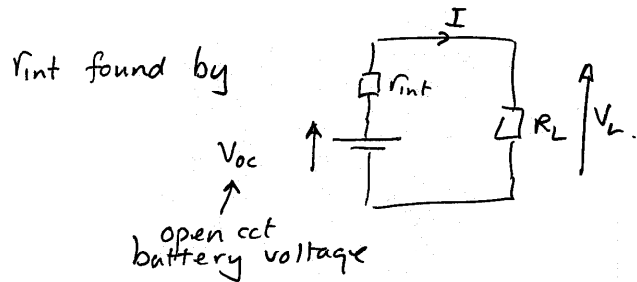 I
rint found by
rint
RL
VL.
Voc
open cct
battery voltage